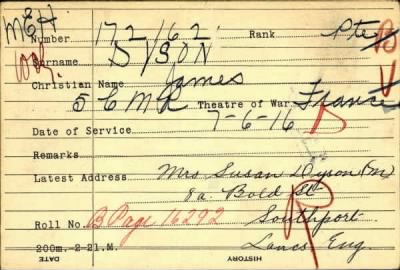 M&H
Number 172162 Rank Pte B
Surname DYSON
Christian Name James V
5 C M R Theatre of War France
Date of Service 7-6-16 D
Remarks
Latest Address Mrs Susan Dyson (M)
8a Bold St
Roll No. B Page 16292 Southport
200m.-2-21.M. Lancs Eng. R
HISTORY
DATE